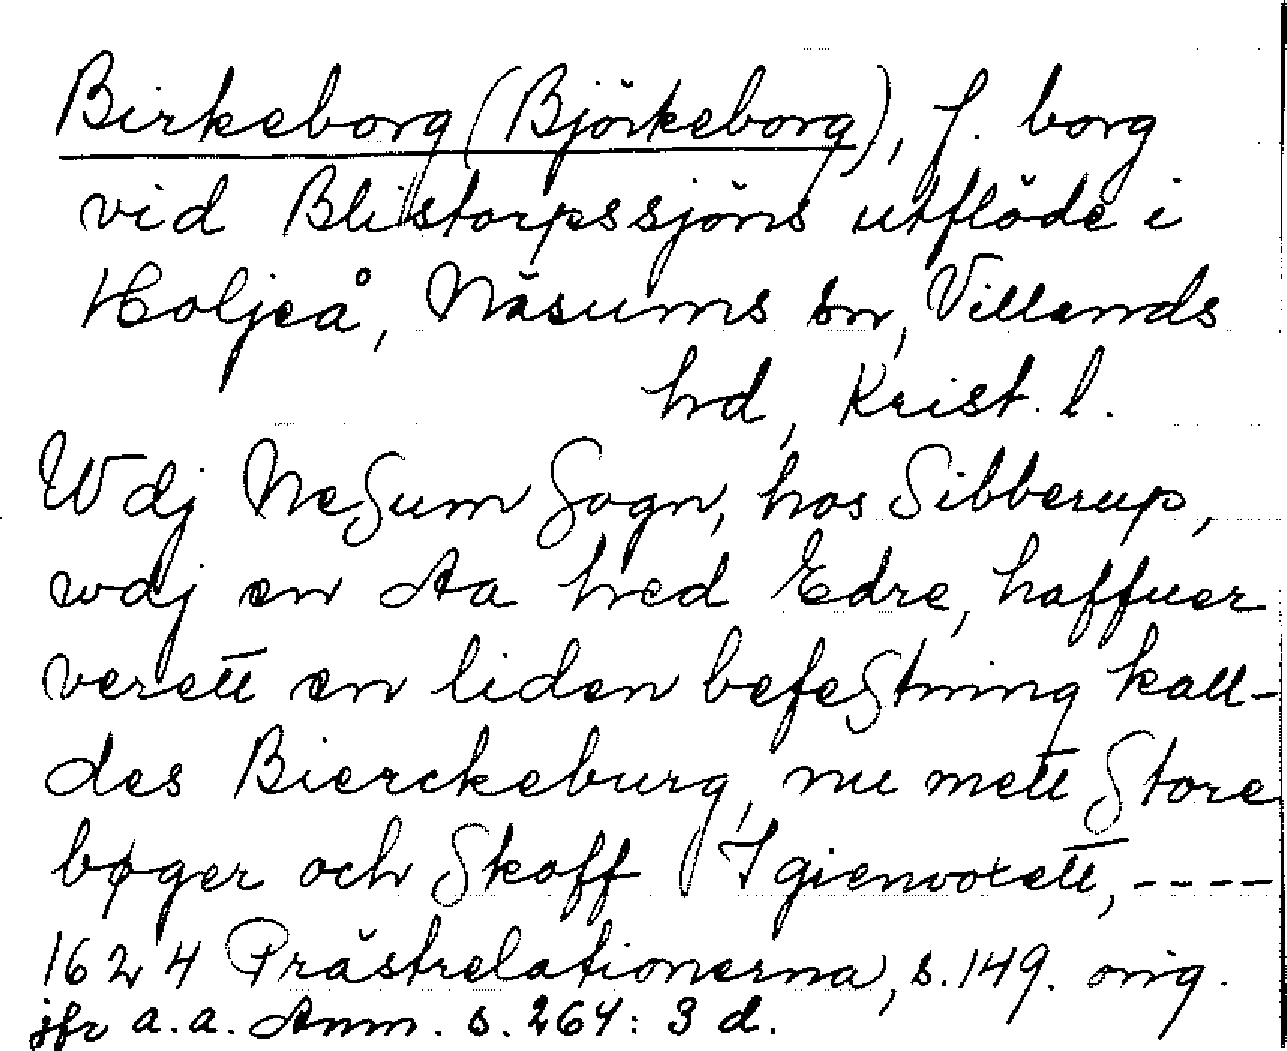 Birkeborg (Björkeborg), f. borg
vid Blistorpssjöns utflöde i
Holjeå, Näsums sn, Villands
hrd, Krist. l.
Wdj NeSum Sogn, hos Sibberup,
wdj en Aa hred Edre, haffuer
verett en liden befeStning kall-
des Bierckeburg, nu mett Store
bøger och Skoff Igienvoxett, ----
1624 Prästrelationerna, s. 149. orig.
jfr a.a. Anm. s. 264: 3 d.